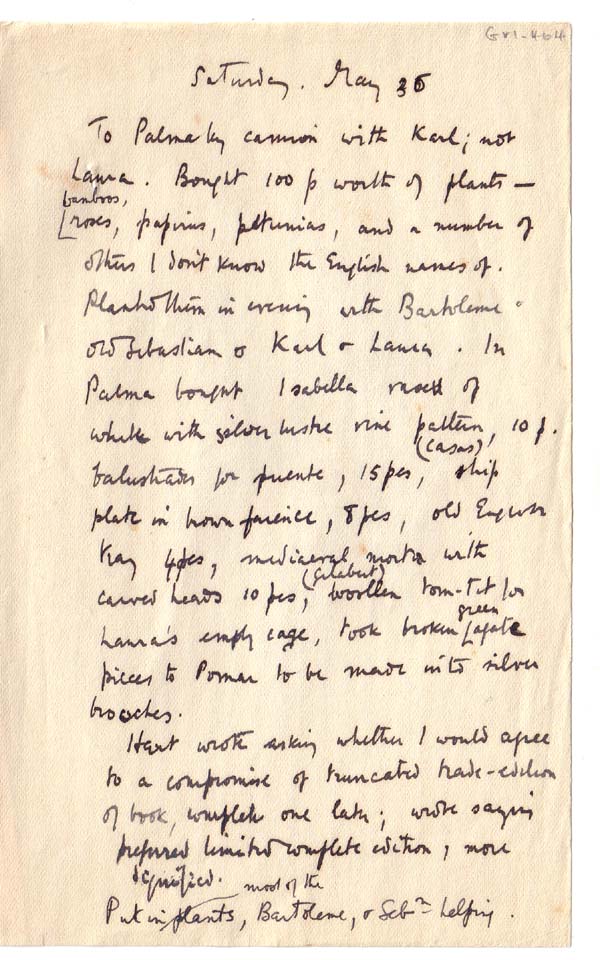 GX1-464
Saturday. May 30
To Palma by camion with Karl; not
Laura. Bought 100 p worth of plants —
bamboos,
[roses, papirus, petunias, and a number of
others I don't know the English names of.
Planted them in evening with Bartoleme
old Sebastian & Karl & Laura. In
Palma bought Isabella vase of
white with silver lustre vine pattern, 10 p.
(Casas)
balustrades for puente, 15 pes, ship
plate in brown faience, 8 pes, old English
tray 4 pes, mediaeval mortar with
(Gelabert)
carved heads 10 pes, woollen tom-tit for
green
Laura's empty cage, took broken [agate
pieces to Pomar to be made into silver
brooches.
Hart wrote asking whether I would agree
to a compromise of truncated trade-edition
of book, complete one later; wrote saying
preferred limited complete edition, more
dignified.
most of the
Put in plants, Bartoleme, & Sebn helping.